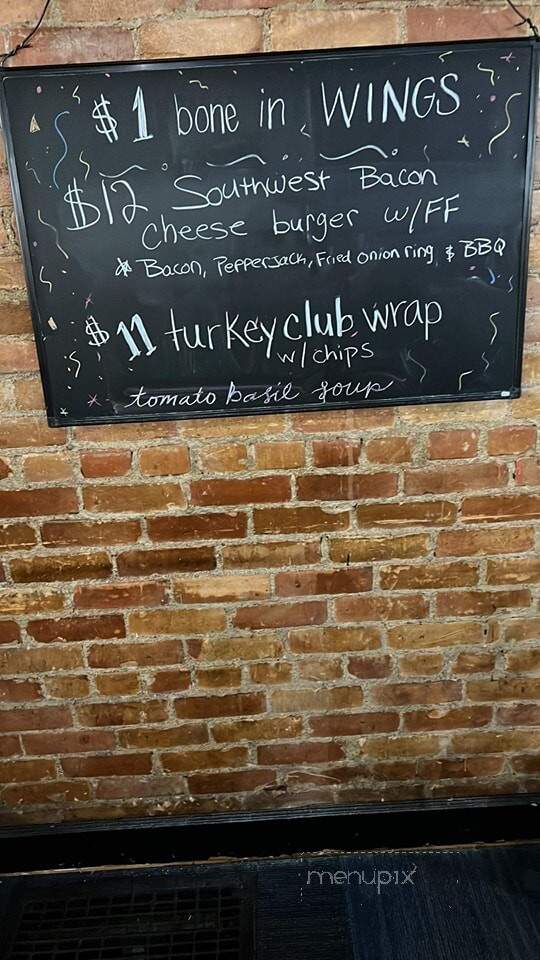 $1 bone in WINGS
$12 Southwest Bacon
cheese burger w/FF
* Bacon, Pepperjack, Fried onion ring, & BBQ
$11 turkey club wrap
w/chips
tomato basil soup
menupix